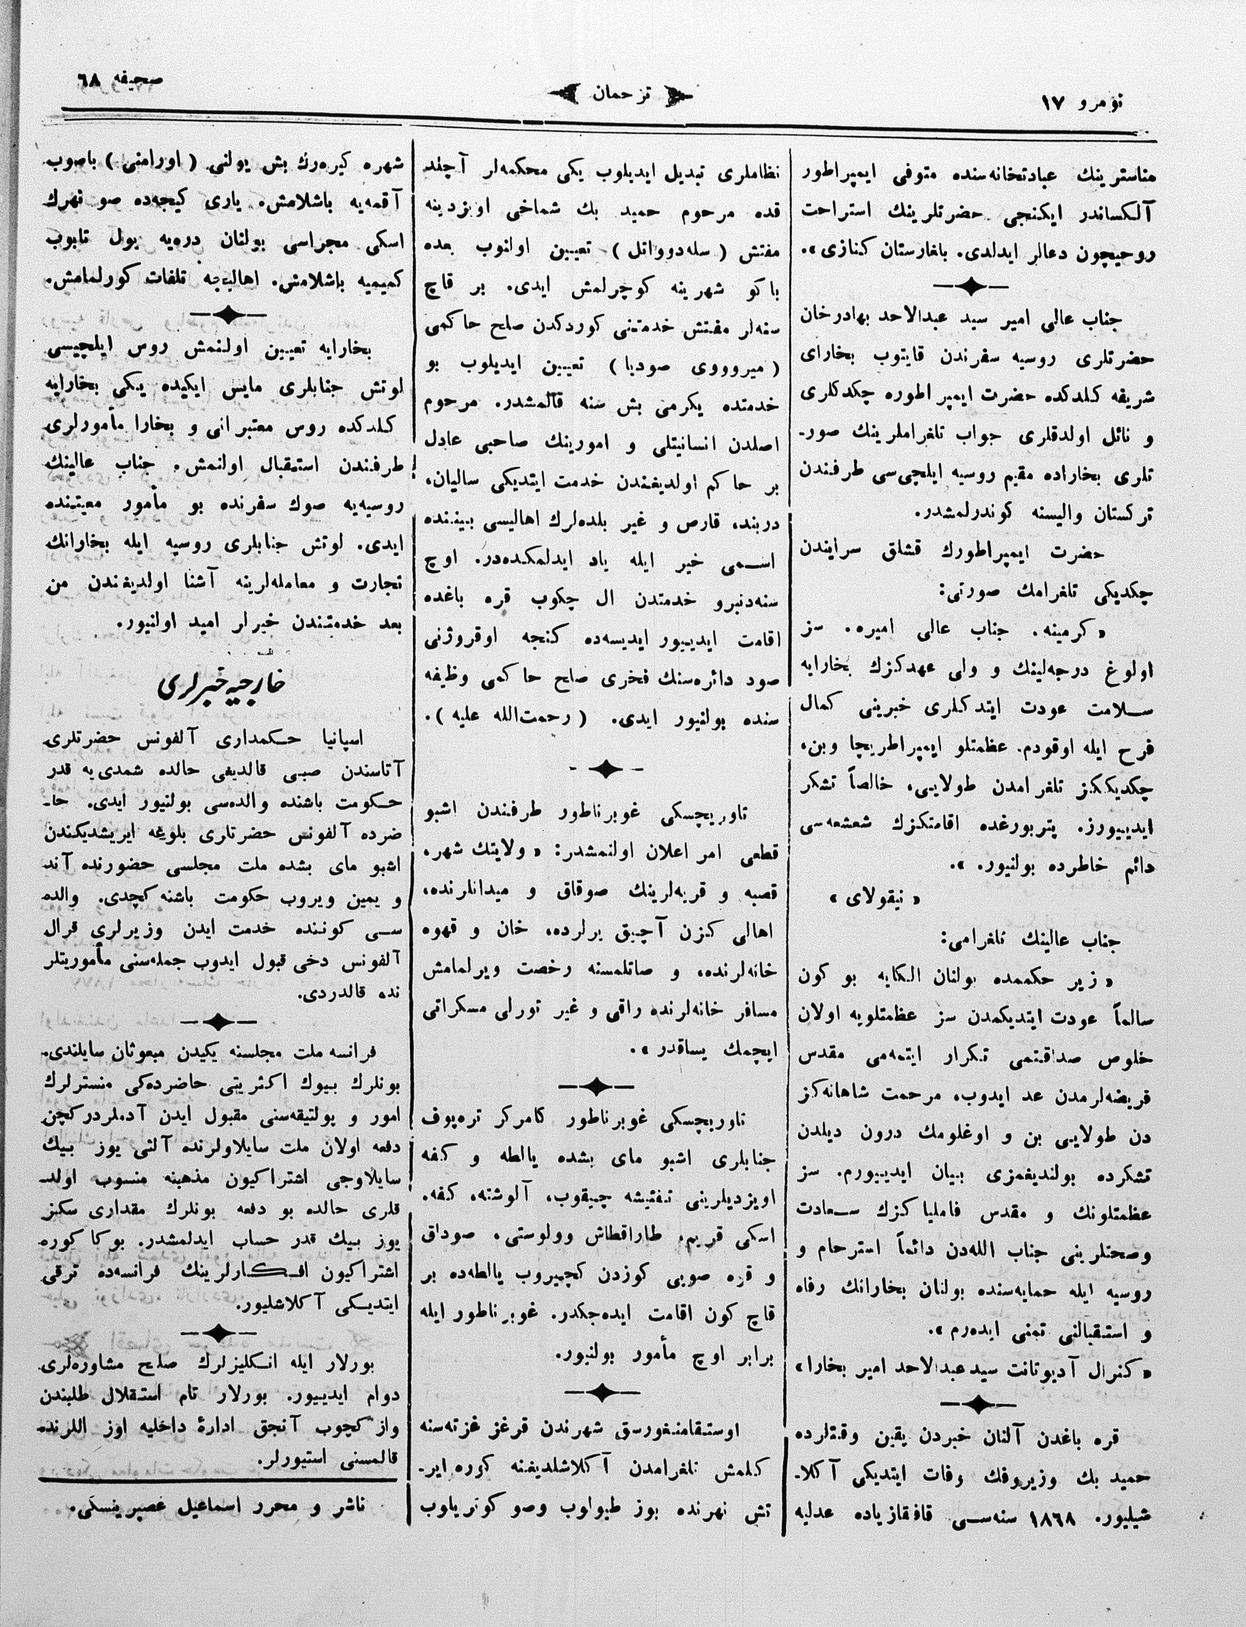 نومرو ١٧
ترجمان
صحیفه ٦٨
مناسترینك عبادتخانه‌سنده متوفی ایمپراطور
آلكساندر ایكنجی حضرتلرینك استراحت
روحیچون دعالر ایدلدی. باغارستان كنازی».
جناب عالی امیر سید عبدالاحد بهادرخان
حضرتلری روسیه سفرندن قایتوب بخارای
شریفه كلدكده حضرت ایمپراطوره چكدكلری
و نائل اولدقلری جواب تلغراملرینك صور-
تلری بخاراده مقیم روسیه ایلچی‌سی طرفندن
تركستان والیسنه كوندرلمشدر.
حضرت ایمپراطورك قشلق سرایندن
چكدیكی تلغرامك صورتی:
«كرمینه. جناب عالی امیره. سز
اولوغ درجه‌لینك و ولی عهدكزك بخارایه
سلامت عودت ایتدكلری خبرینی كمال
فرح ایله اوقودم. عظمتلو ایمپراطریچا وبن،
چكدیككز تلغرامدن طولایی، خالصاً تشكر
ایدییورز. پتربورغده اقامتكزك شعشعه‌سی
دائم خاطرده بولنیور.».
«نیقولای»
جناب عالینك تلغرامی:
«زیر حكممده بولنان الكایه بو كون
سالماً عودت ایتدیكمدن سز عظمتلویه اولان
خلوص صداقتمی تكرار ایتمه‌می مقدس
فریضه‌لرمدن عد ایدوب، مرحمت شاهانه‌كز
دن طولایی بن و اوغلومك درون دیلدن
تشكرده بولندیغمزی بیان ایدییورم. سز
عظمتلونك و مقدس فاملیاكزك سعادت
وصحتلرینی جناب الله‌دن دائماً استرحام و
روسیه ایله حمایه‌سنده بولنان بخارانك رفاه
و استقبالنی تمنی ایده‌رم».
«كنرال آدیوتانت سید عبدالاحد امیر بخارا»
قره باغدن آلنان خبردن یقین وقتلرده
حمید بك وزیروفك وفات ایتدیكی آكلا-
شیلیور. ١٨٦٨ سنه‌سی قافقازیاده عدلیه
نظاملری تبدیل ایدیلوب یكی محكمه‌لر آچلد
قده مرحوم حمید بك شماخی اویزدینه
مفتش (سله‌دوواتل) تعیین اولنوب بعده
باكو شهرینه كوچرلمش ایدی. بر قاچ
سنه‌لر مفتش خدمتنی كوردكدن صلح حاكمی
(میروووی صودیا) تعیین ایدیلوب بو
خدمتده یكرمی بش سنه قالمشدر. مرحوم
اصلدن انسانیتلی و امورینك صاحبی عادل
بر حاكم اولدیغندن خدمت ایتدیكی سالیان،
دربند، قارص و غیر بلده‌لرك اهالیسی بیننده
اسمی خیر ایله یاد ایدلمكده‌در. اوچ
سنه‌دنبرو خدمتدن ال چكوب قره باغده
اقامت ایدییور ایدیسه‌ده كنجه اوقروژنی
صود دائره‌سنك فخری صلح حاكمی وظیفه
سنده بولنیور ایدی. (رحمت‌الله علیه).
تاوریچسكی غوبرناطور طرفندن اشبو
قطعی امر اعلان اولنمشدر: «ولایتك شهر،
قصبه و قریه‌لرینك صوقاق و میدانلرنده،
اهالی كزن آچیق یرلرده، خان و قهوه
خانه‌لرنده، و صاتلمسنه رخصت ویرلمامش
مسافر خانه‌لرنده راقی و غیر تورلی مسكراتی
ایچمك یساقدر».
تاوریچسكی غوبرناطور كامركر تره‌پوف
جنابلری اشبو مای بشده یالطه و كفه
اویزدیلرینی تفتیشه چیقوب، آلوشته، كفه،
اسكی قریم، طاراقطاش وولوستی، صوداق
و قره صوبی كوزدن كچیروب یالطه‌ده بر
قاچ كون اقامت ایده‌جكدر. غوبرناطور ایله
برابر اوچ مأمور بولنیور.
اوستقامنغورسق شهرندن قرغز غزته‌سنه
كلمش تلغرامدن آكلاشلدیغنه كوره ایر-
تش نهرنده بوز طیولوب وصو كوتریلوب
شهره كیره‌رك بش یولنی (اورامنی) باصوب
آقمه‌یه باشلامش. یاری كیجه‌ده صو نهرك
اسكی مجراسی بولنان دره‌یه یول تابوب
كمیمیه باشلامش. اهالیجه تلفات كورلمامش.
بخارایه تعیین اولنمش روس ایلچیسی
لوتش جنابلری مایس ایكیده یكی بخارایه
كلدكده روس معتبرانی و بخارا مأمورلری
طرفندن استقبال اولنمش. جناب عالینك
روسیه‌یه صوك سفرنده بو مأمور معیتنده
ایدی. لوتش جنابلری روسیه ایله بخارانك
تجارت و معامله‌لرینه آشنا اولدیغندن من
بعد خدمتندن خبرلر امید اولنیور.
خارجیه خبرلری
اسپانیا حكمداری آلفونس حضرتلری
آتاسندن صبی قالدیغی حالده شمدی‌یه قدر
حكومت باشنده والده‌سی بولنیور ایدی. حا-
ضرده آلفونس حضرتلری بلوغه ایریشدیكندن
اشبو مای بشده ملت مجلسی حضورنده آند
و یمین ویروب حكومت باشنه كچدی. والده
سی كوننده خدمت ایدن وزیرلری قرال
آلفونس دخی قبول ایدوب جمله‌سنی مأموریتلر
نده قالدردی.
فرانسه ملت مجلسنه یكیدن مبعوثان سایلندی.
بونلرك بیوك اكثریتی حاضرده‌كی منسترلرك
امور و پولتیقه‌سنی مقبول ایدن آدملردر كچن
دفعه اولان ملت سایلاولرنده آلتی یوز بیك
سایلاوجی اشتراكیون مذهبنه منسوب اولد
قلری حالده بو دفعه بونلرك مقداری سكز
یوز بیك قدر حساب ایدلمشدر. بوكا كوره
اشتراكیون افكارلرینك فرانسه‌ده ترقی
ایتدیكی آكلاشلیور.
بورلار ایله انكلیزلرك صلح مشاوره‌لری
دوام ایدییور. بورلار تام استقلال طلبندن
واز كچوب آنجق ادارۀ داخلیه اوز اللرنده
قالمسنی استیورلر.
ناشر و محرر اسماعیل غصپرینسكی.